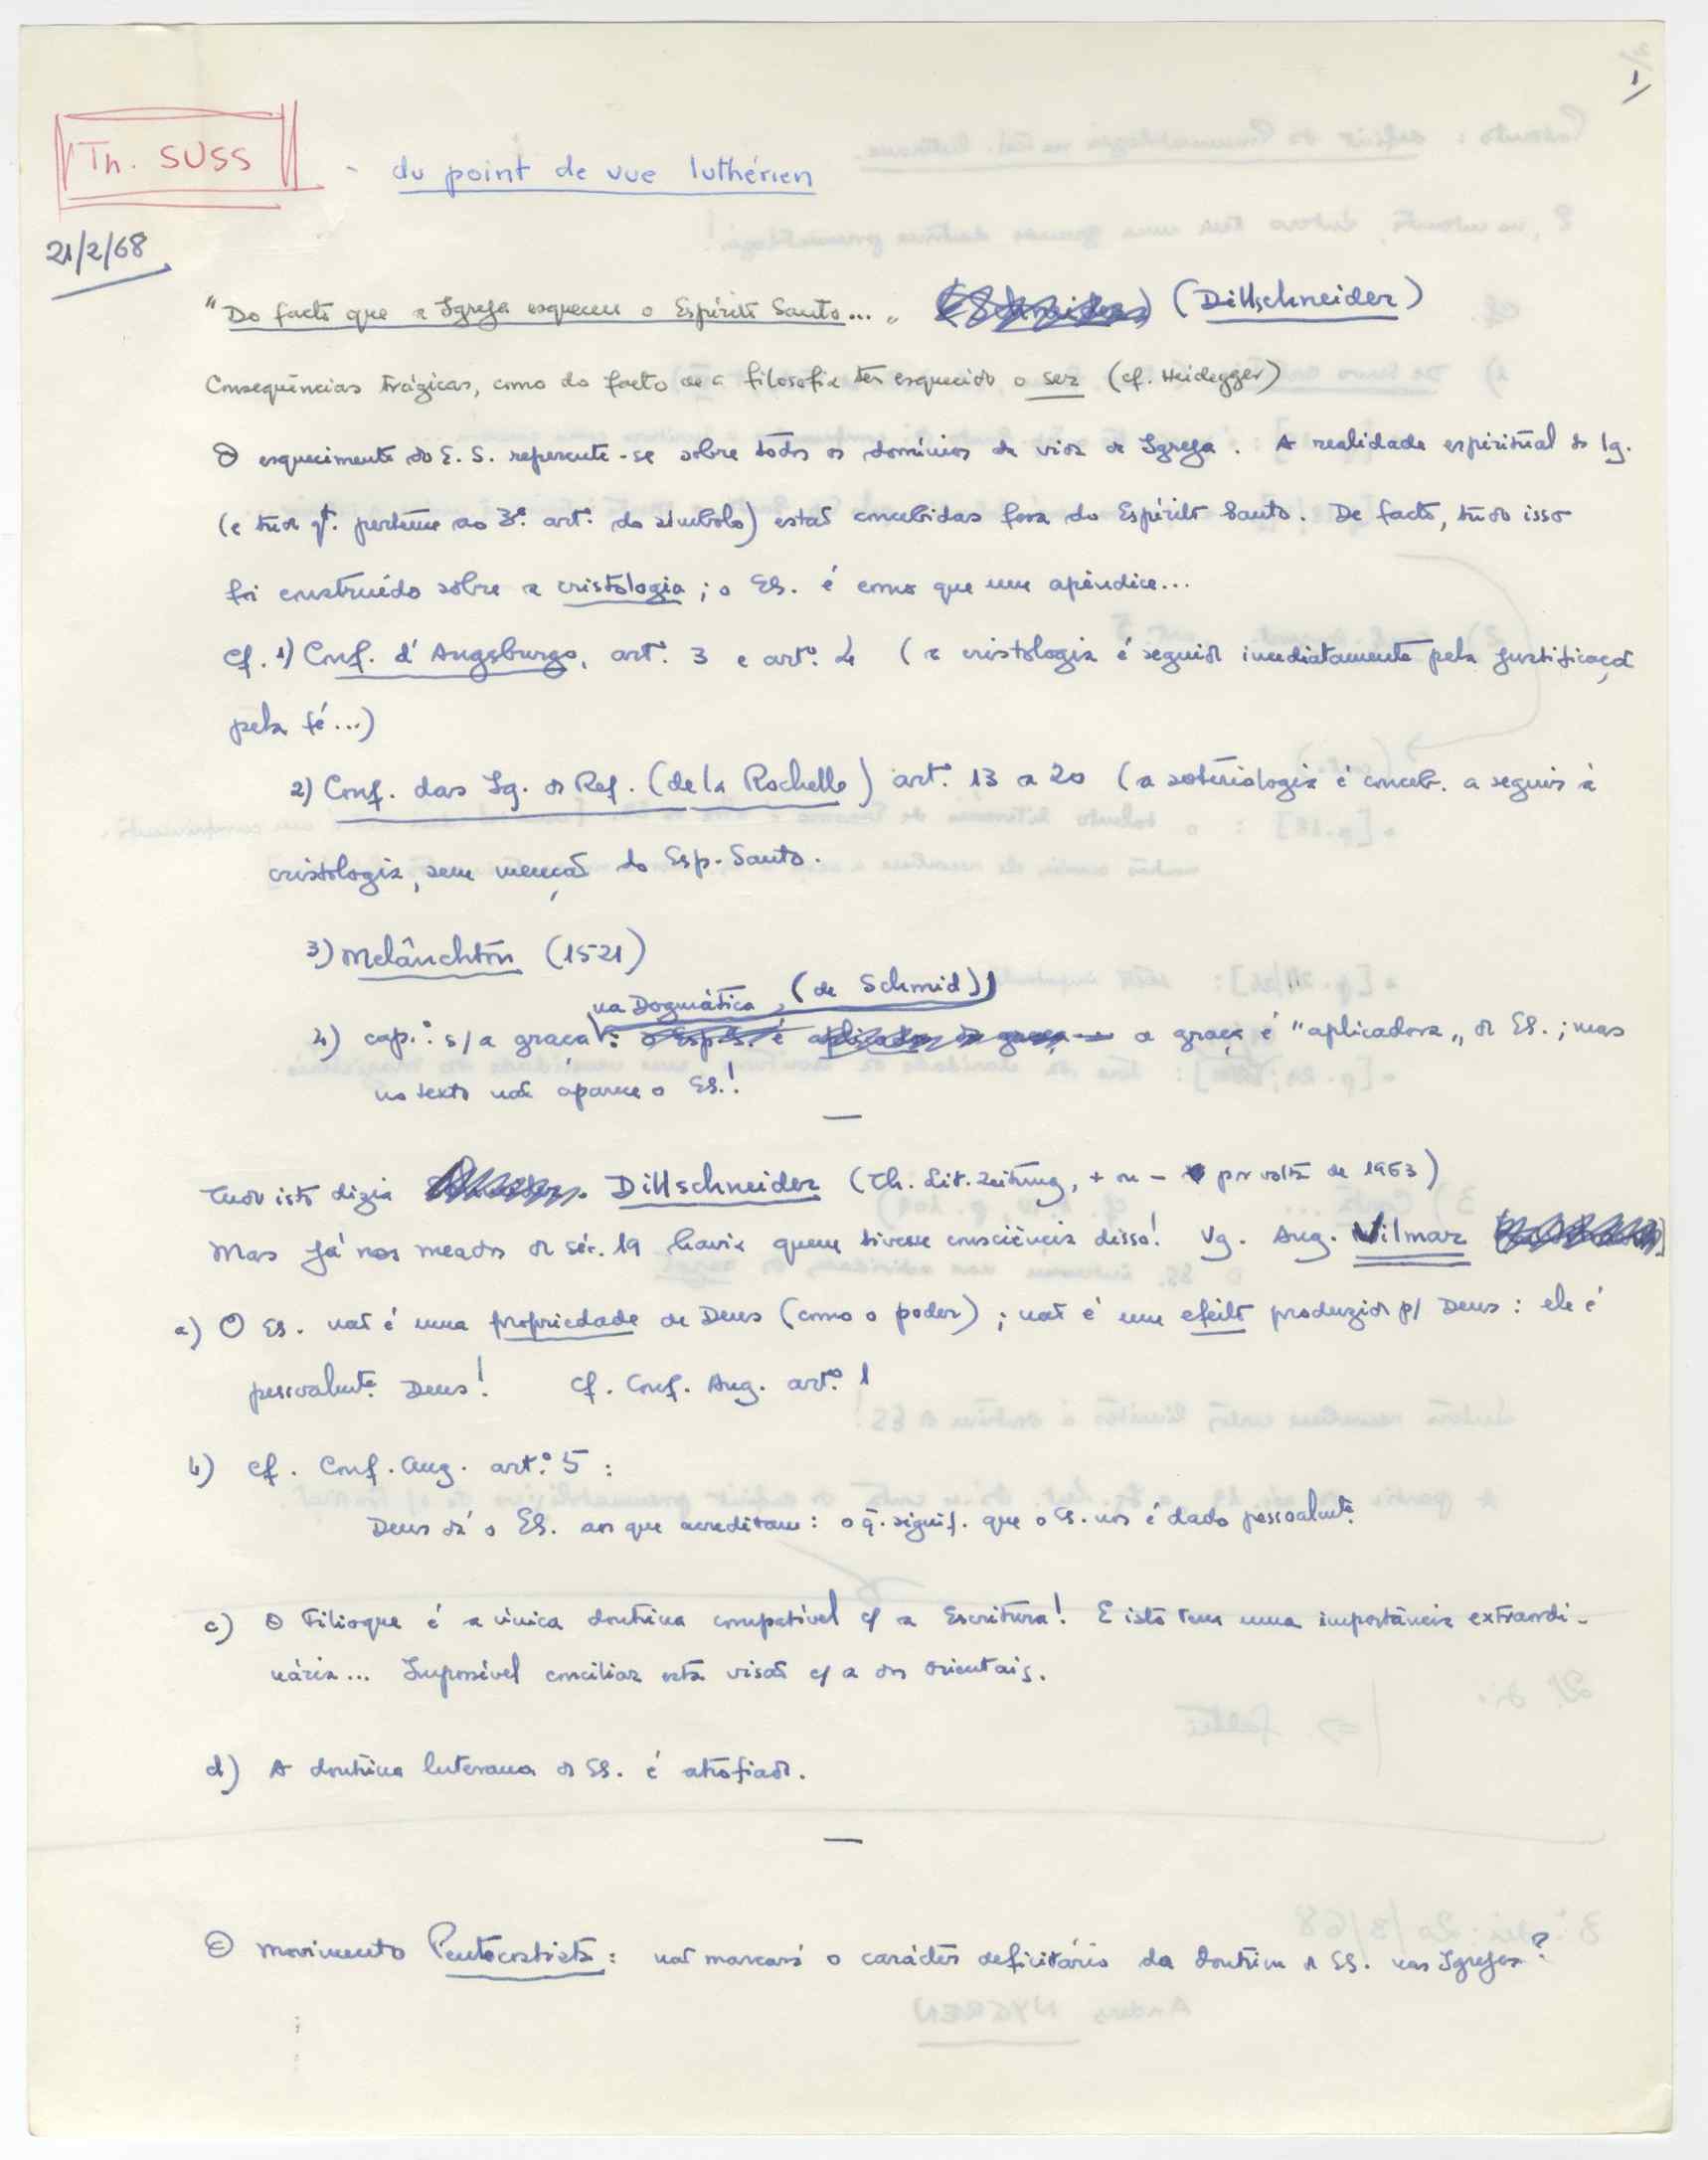 1
Th. SUSS - du point de vue luthérien
21/2/68
"Do facto que a Igreja esqueceu o Espírito Santo..." (Dillschneider)
Consequências trágicas, como do facto de a filosofia ter esquecido o ser (cf. Heidegger)
O esquecimento do E. S. repercute-se sobre todos os domínios da vida da Igreja. A realidade espiritual da Ig.
(e tudo qt. pertence ao 3º. artº. do símbolo) estão concebidas fora do Espírito Santo. De facto, tudo isso
foi construído sobre a cristologia; o ES. é como que um apêndice...
Cf. 1) Conf. d'Augsburgo, artº. 3 e artº. 4 (a cristologia é seguida imediatamente pela justificação
pela fé...)
2) Conf. das Ig. da Ref. (de la Rochelle) artº. 13 a 20 (a soteriologia é conceb. a seguir à
cristologia, sem menção do Esp. Santo.
3) Melânchton (1521)
na Dogmática, (de Schmid))
4) cap.º: s/a graça: a graça é "aplicadora" do ES.; mas
no texto não aparece o ES.!
—
Tudo isto dizia Dillschneider (Th. Lit. Zeitung, + ou - por volta de 1963)
Mas já nos meados do séc. 19 havia quem tivesse consciência disso! Vg. Aug. Vilmar
a) O ES. não é uma propriedade de Deus (como o poder); não é um efeito produzido p/ Deus: ele é
pessoalmte. Deus! Cf. Conf. Aug. artº. 1
b) Cf. Conf. Aug. artº. 5:
Deus dá o ES. aos que acreditam: o q. signif. que o ES. nos é dado pessoalmte.
c) O Filioque é a única doutrina compatível c/ a Escritura! E isto tem uma importância extraordi-
nária... Impossível conciliar esta visão c/ a dos Orientais.
d) A doutrina luterana do ES. é atrofiada.
—
O movimento Pentecostista: não marcará o carácter deficitário da doutrina do ES. nas Igrejas?